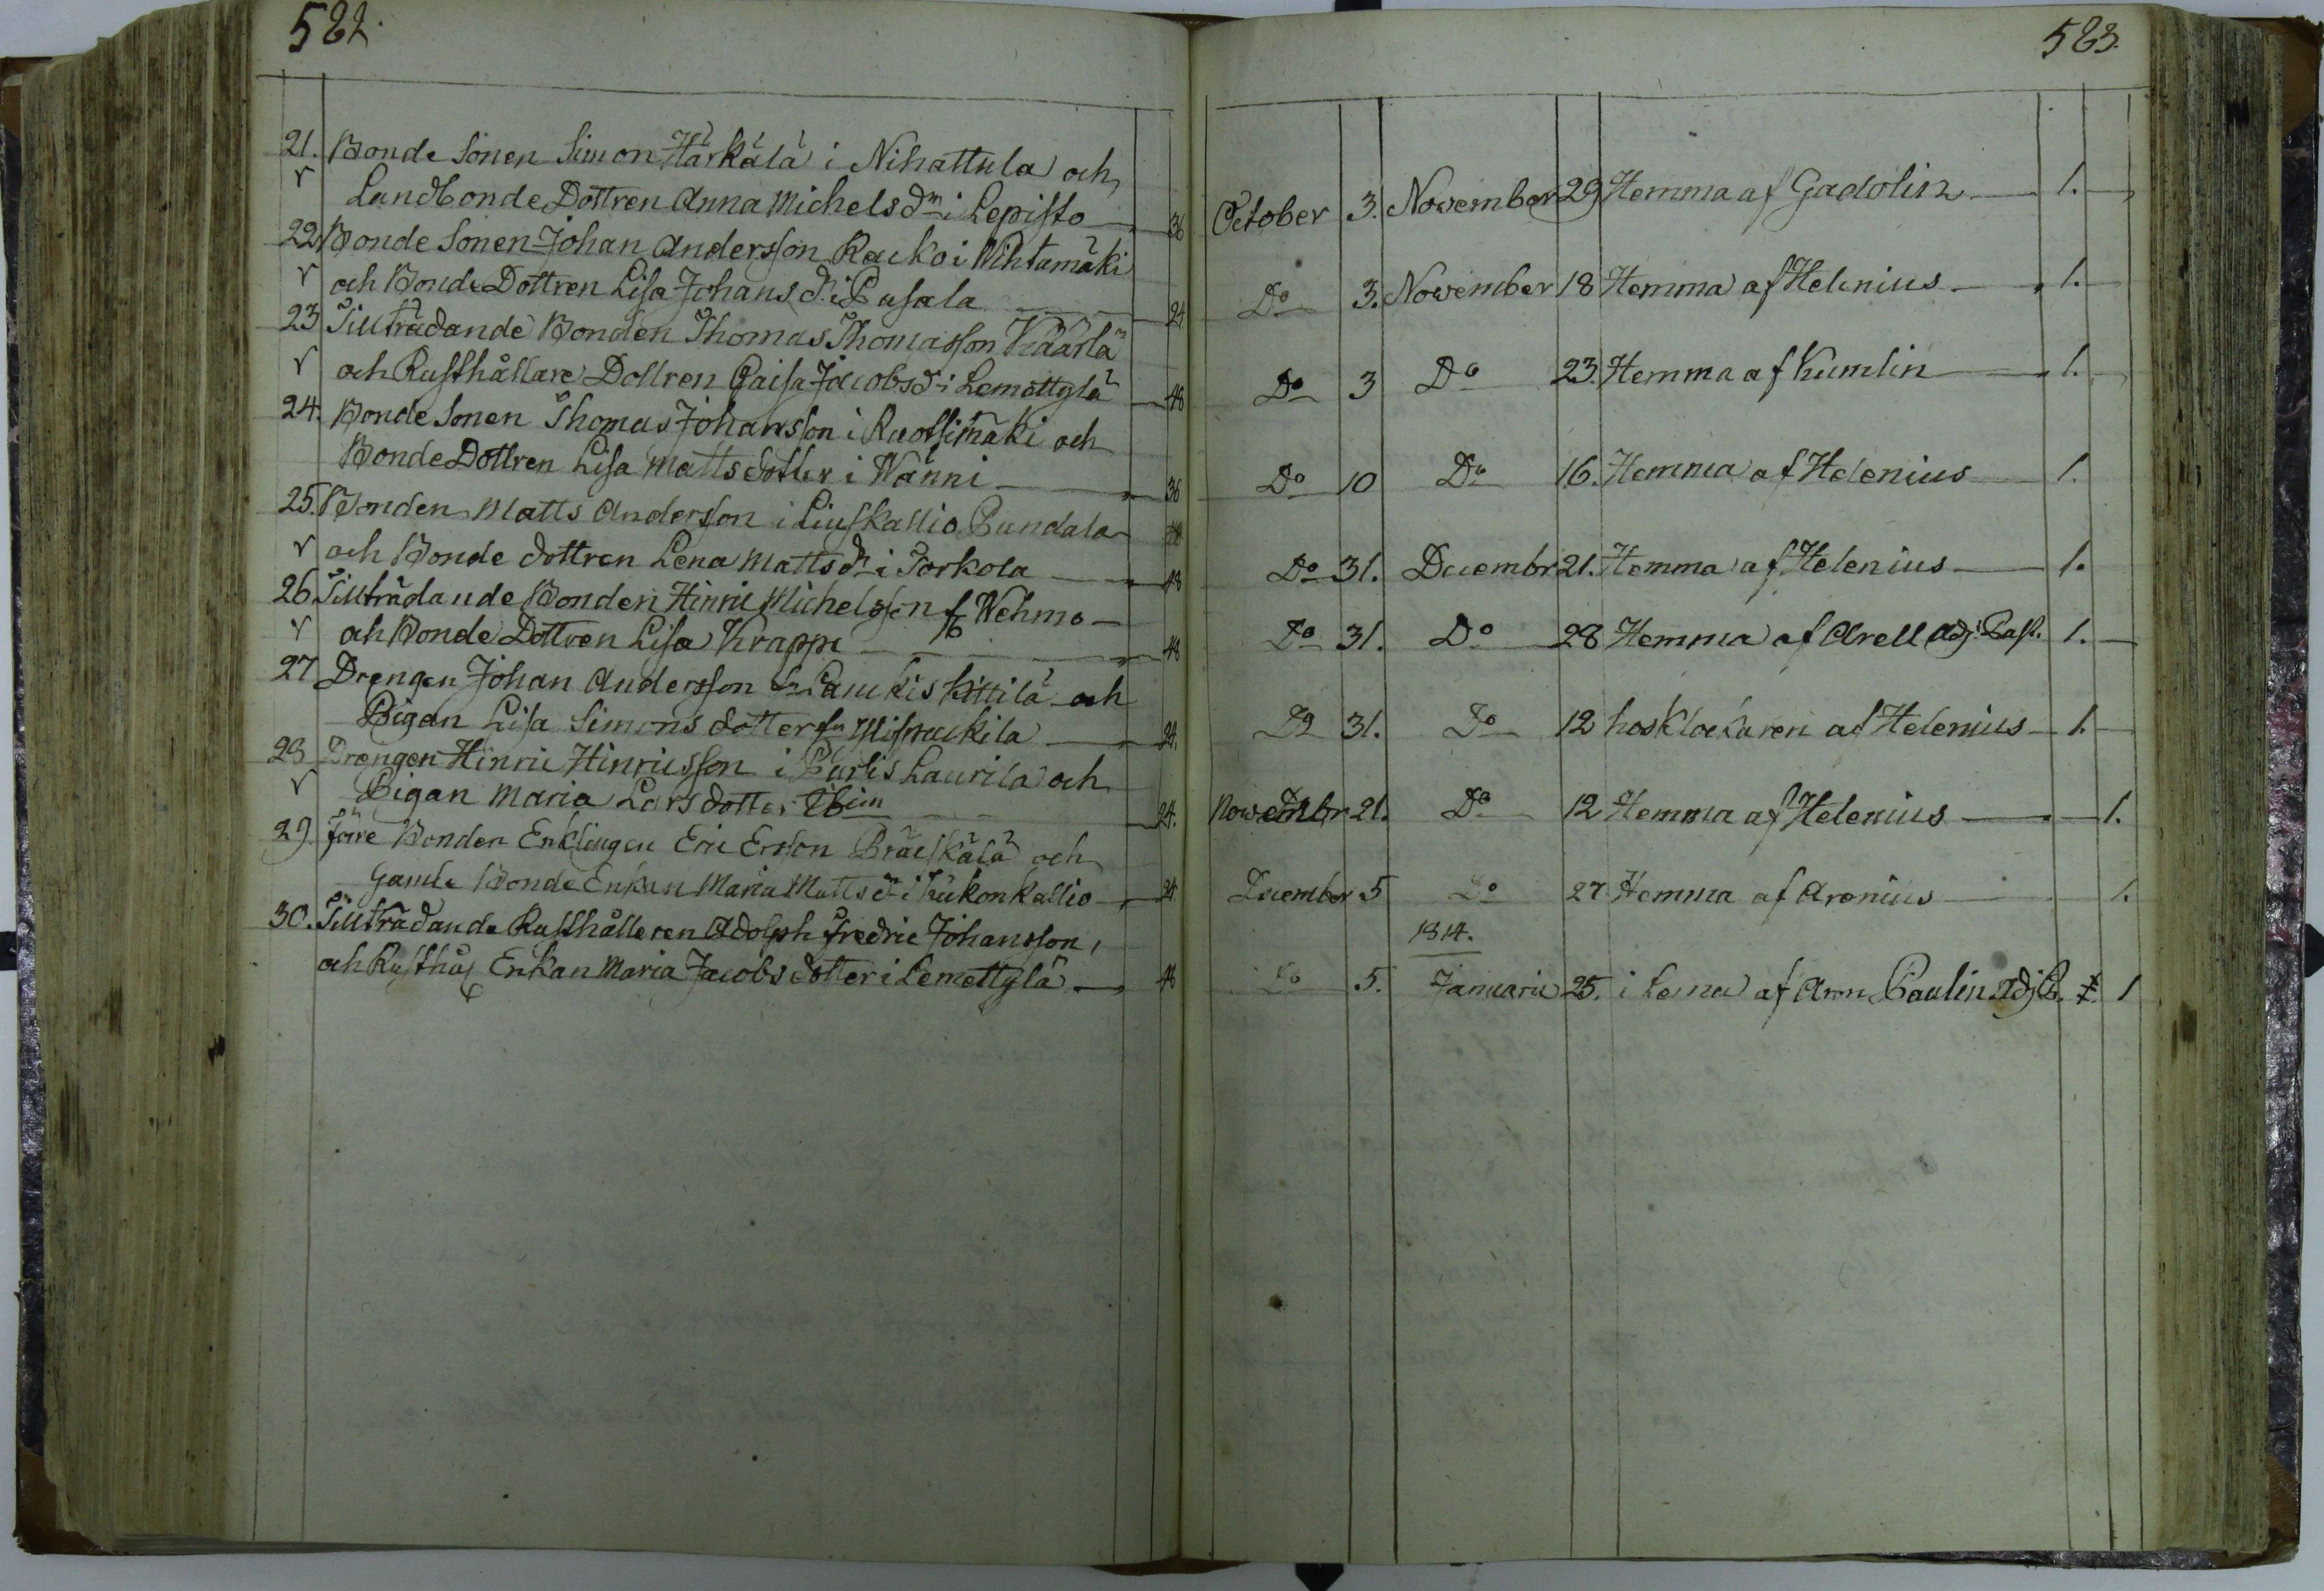 582.
21. Bonde Sonen Simon Härkälä i Nihattula och
Landbonde Dottren Anna Michels dr i Lepisto 36
22. Bonde Sonen Johan Andersson Rauko i Wihtamäki
och Bonde Dottren Lisa Johans dr i Pusala 24
23 Tillträdande Bonden Thomas Thomasson Käärlä
och Rusthållare Dottren Caisa Jacobs dr i Lemettylä 48
24. Bonde Sonen Thomas Johansson i Ruotsimäki och
Bonde Dottren Lisa Matts dotter i Wänni 36
25. Bonden Matts Andersson i Liuskallio Pundala
och Bonde dottren Lena Matts dr i Torkola 48
26 Tillträdande Bonden Hinric Michelsson f Wehmo
och Bonde Dottren Lisa Krappe 48
27 Drengen Johan Andersson Kittilä och
Pigan Lisa Simons dotter 24.
28 Drengen Hinric Hinricsson i Purtis Laurila och
Pigan Maria Lars dotter ibim 24.
29. förre Bonden Enklingen Eric Ersson Präiskälä och
Gamle Bonde Enkan Maria Matts dr i Kukonkallio 24
30. Tillträdande Rusthålleren Adolph Fredric Johansson,
och Rusthåll Enkan Maria Jacobs dotter i Lemettylä 48
583.
October 3. November 29 Hemma af Gadolin 1.
Do 3. November 18 Hemma af Helenius 1.
Do 3 Do 23. Hemma af Kumlin 1.
Do 10 Do 16. Hemma af Helenius 1.
Do 31. Decembr 21. Hemma af Helenius 1.
Do 31. Do 28 Hemma af Arell Adj. Past. 1.
Do 31. Do 12 hos Klockaren af Helenius 1.
Novembr 21. Do 12 Hemma af Helenius 1.
December 5 Do 27 Hemma af Aronius 1.
1814.
Do 5. Januarii 25. i Lemu af Aron Paulin Adj. P. 1